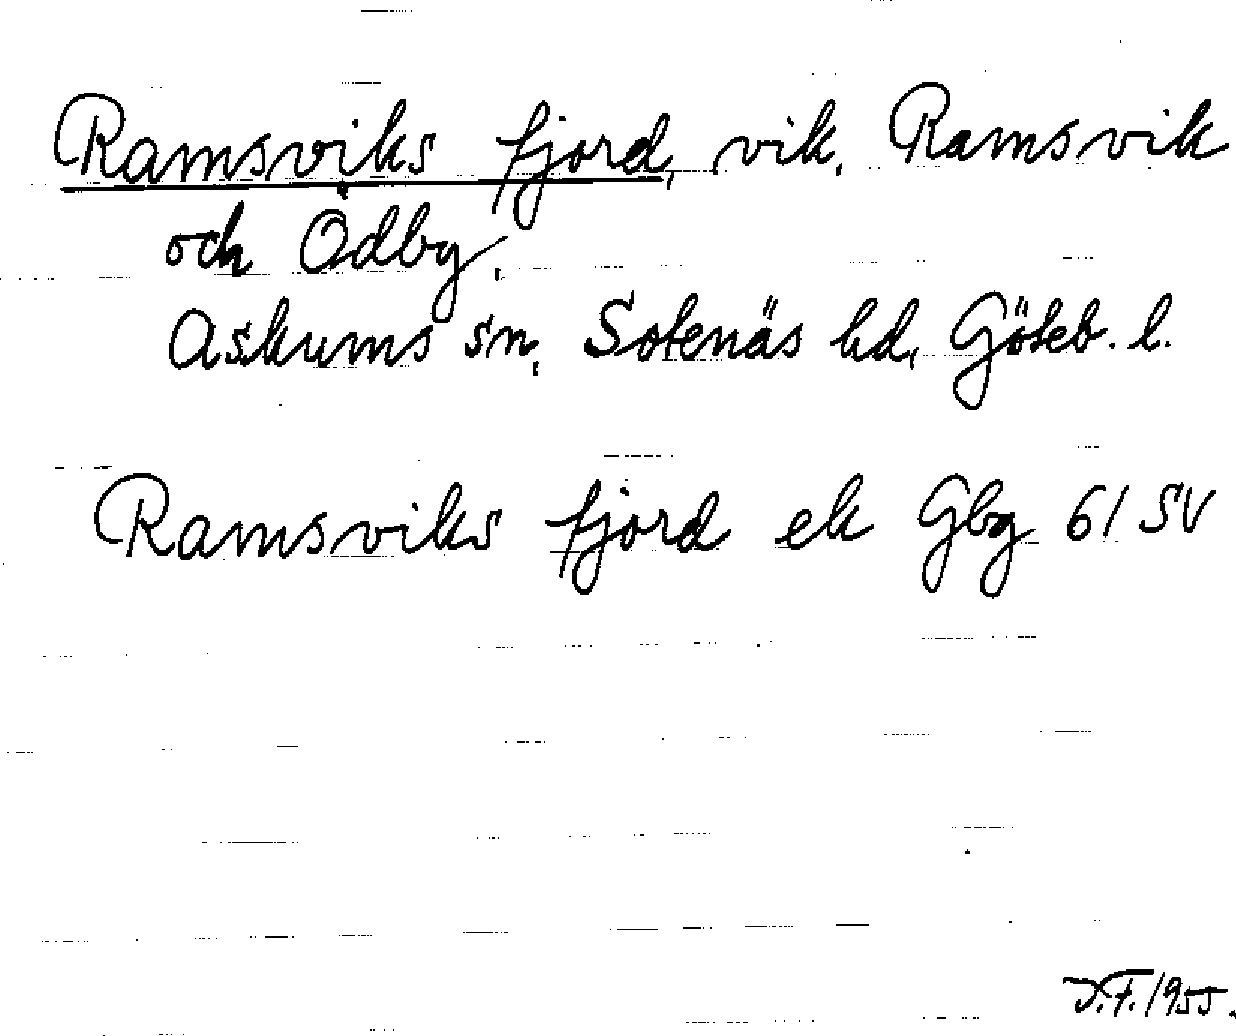 Ramsviks fjord, vik, Ramsvik
och Ödby,
Askums sn, Sotenäs hd, Göteb. l.
Ramsviks fjord ek Gbg 61 SV
D.F. 1955.